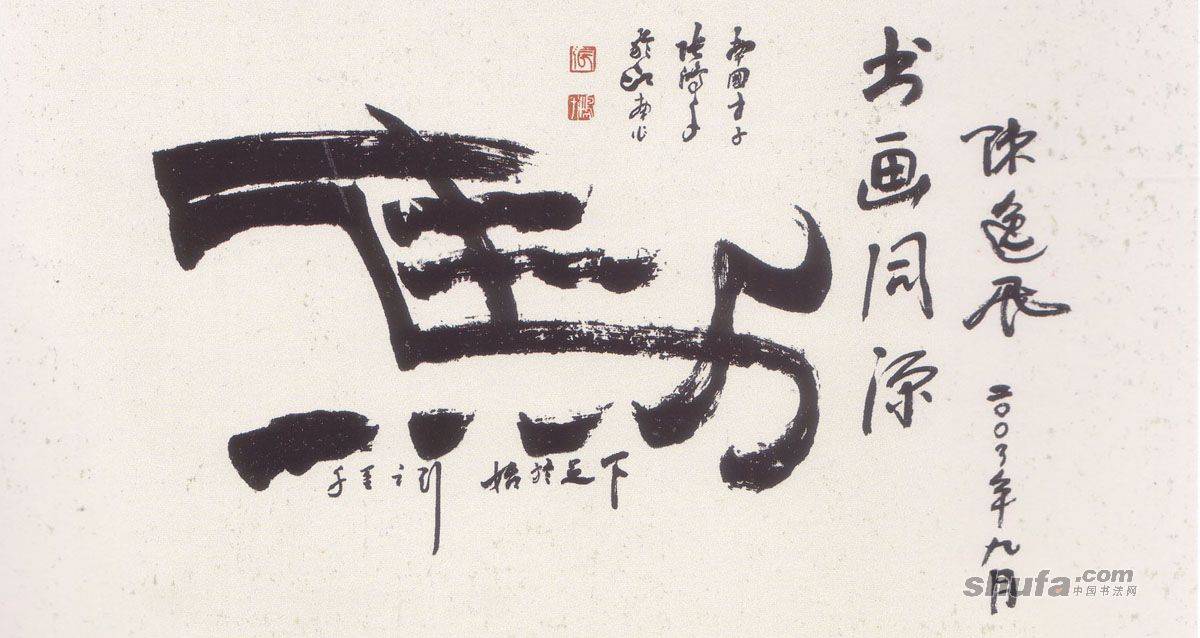 陳逸飛 二〇〇三年九月
书画同源
馬
千里之行 始於足下
shufa.com
中国书法网